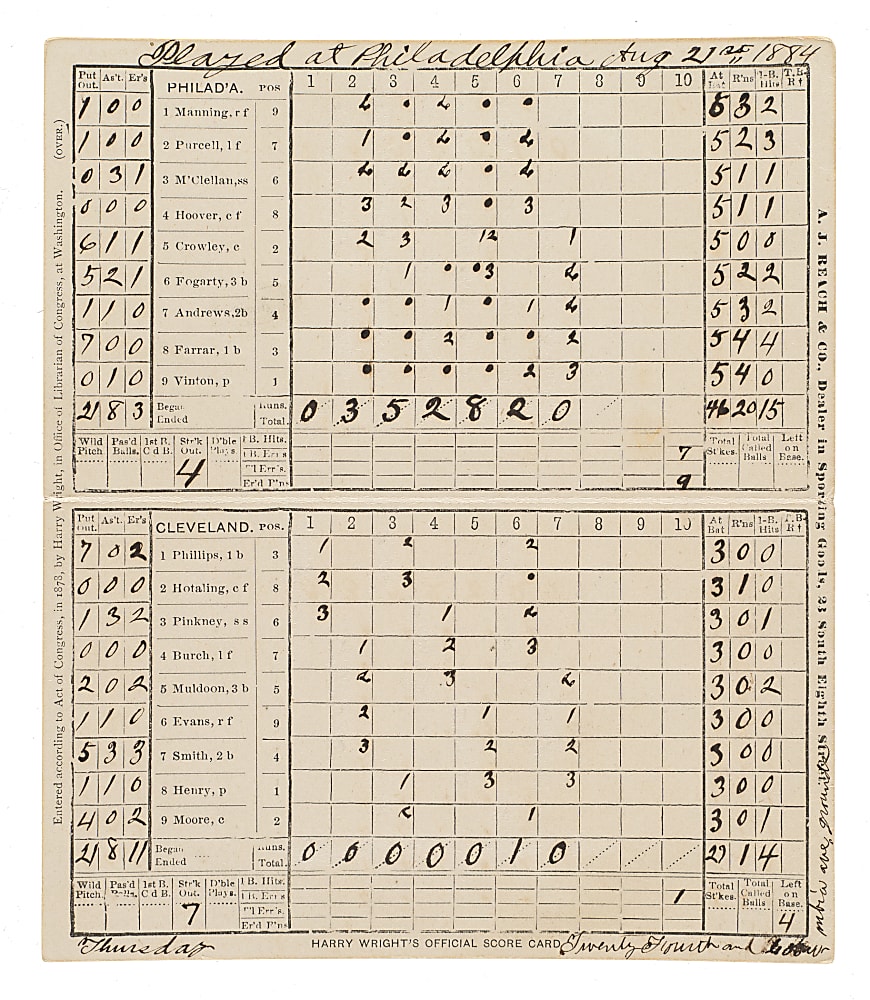 Played at Philadelphia Aug 21st, 1884
Put Out. As't. Er's PHILAD'A. POS 1 2 3 4 5 6 7 8 9 10 At Bat R'ns 1-B. Hits T.B. R†
1 0 0 1 Manning, r f 9 5 3 2
1 0 0 2 Purcell, l f 7 1 5 2 3
0 3 1 3 M'Clellan, ss 6 5 1 1
0 0 0 4 Hoover, c f 8 3 2 3 3 5 1 1
6 1 1 5 Crowley, c 2 2 3 12 1 5 0 0
5 2 1 6 Fogarty, 3 b 5 1 3 2 5 2 2
1 1 0 7 Andrews, 2b 4 1 1 2 5 3 2
7 0 0 8 Farrar, 1 b 3 2 2 5 4 4
0 1 0 9 Vinton, p 1 2 3 5 4 0
21 8 3 Began Ended Runs. Total. 0 3 5 2 8 2 0 46 20 15
Wild Pitch Pas'd Balls. 1st B. C d B. Str'k Out. D'ble Plays. 1 B. Hits. Total St'kes. Total Called Balls Left on Base.
4 1 B. Er's 7
T'l Err's.
Er'd R'ns 9
Put out. As't. Er's CLEVELAND. POS. 1 2 3 4 5 6 7 8 9 10 At Bat R'ns 1-B. Hits T.B. R†
7 0 2 1 Phillips, 1 b 3 1 2 2 3 0 0
0 0 0 2 Hotaling, c f 8 2 3 3 1 0
1 3 2 3 Pinkney, s s 6 3 1 2 3 0 1
0 0 0 4 Burch, l f 7 1 2 3 3 0 0
2 0 2 5 Muldoon, 3 b 5 3 3 0 2
1 1 0 6 Evans, r f 9 2 1 1 3 0 0
5 3 3 7 Smith, 2 b 4 3 2 2 3 0 0
1 1 0 8 Henry, p 1 1 3 3 3 0 0
4 0 2 9 Moore, c 2 1 3 0 1
21 8 11 Began Ended Runs. Total. 0 0 0 0 0 1 0 27 1 4
Wild Pitch. Pas'd Balls. 1st B. C d B. Str'k Out. D'ble Plays. 1 B. Hits. Total St'kes. Total Called Balls Left on Base.
7 1 B. Er's 1 4
T'l Err's.
Er'd R'ns
Thursday HARRY WRIGHT'S OFFICIAL SCORE CARD Twenty Fourth and
Entered according to Act of Congress, in 1878, by Harry Wright, in Office of Librarian of Congress, at Washington. (OVER.)
A. J. REACH & CO., Dealer in Sporting Goods, 23 South Eighth Street,